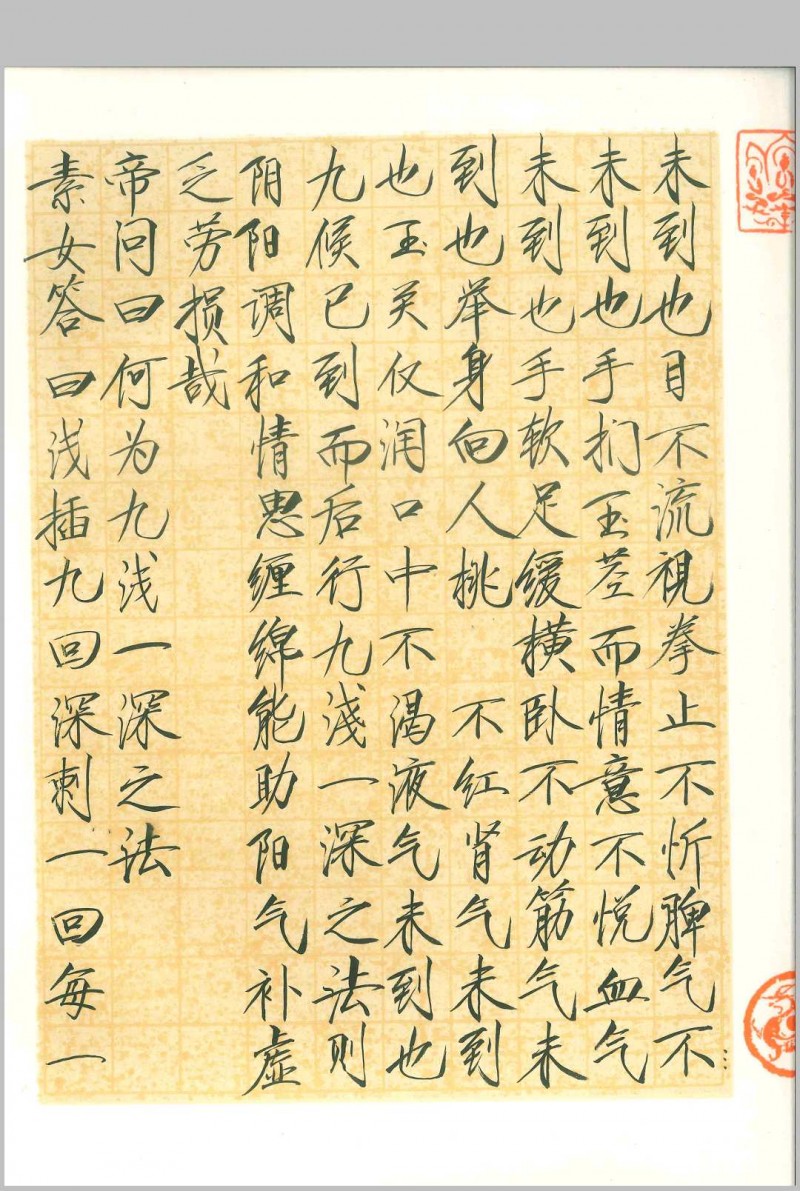 未到也目不流視拳止不忻脾气不
未到也手扪玉茎而情意不悦血气
未到也手软足缓横卧不动筋气未
到也举身向人桃 不红肾气未到
也玉关仅润口中不渴液气未到也
九候已到而后行九淺一深之法则
阴阳调和情思缠绵能助阳气补虚
乏劳损哉
帝问曰何为九浅一深之法
素女答曰浅插九回深刺一回每一